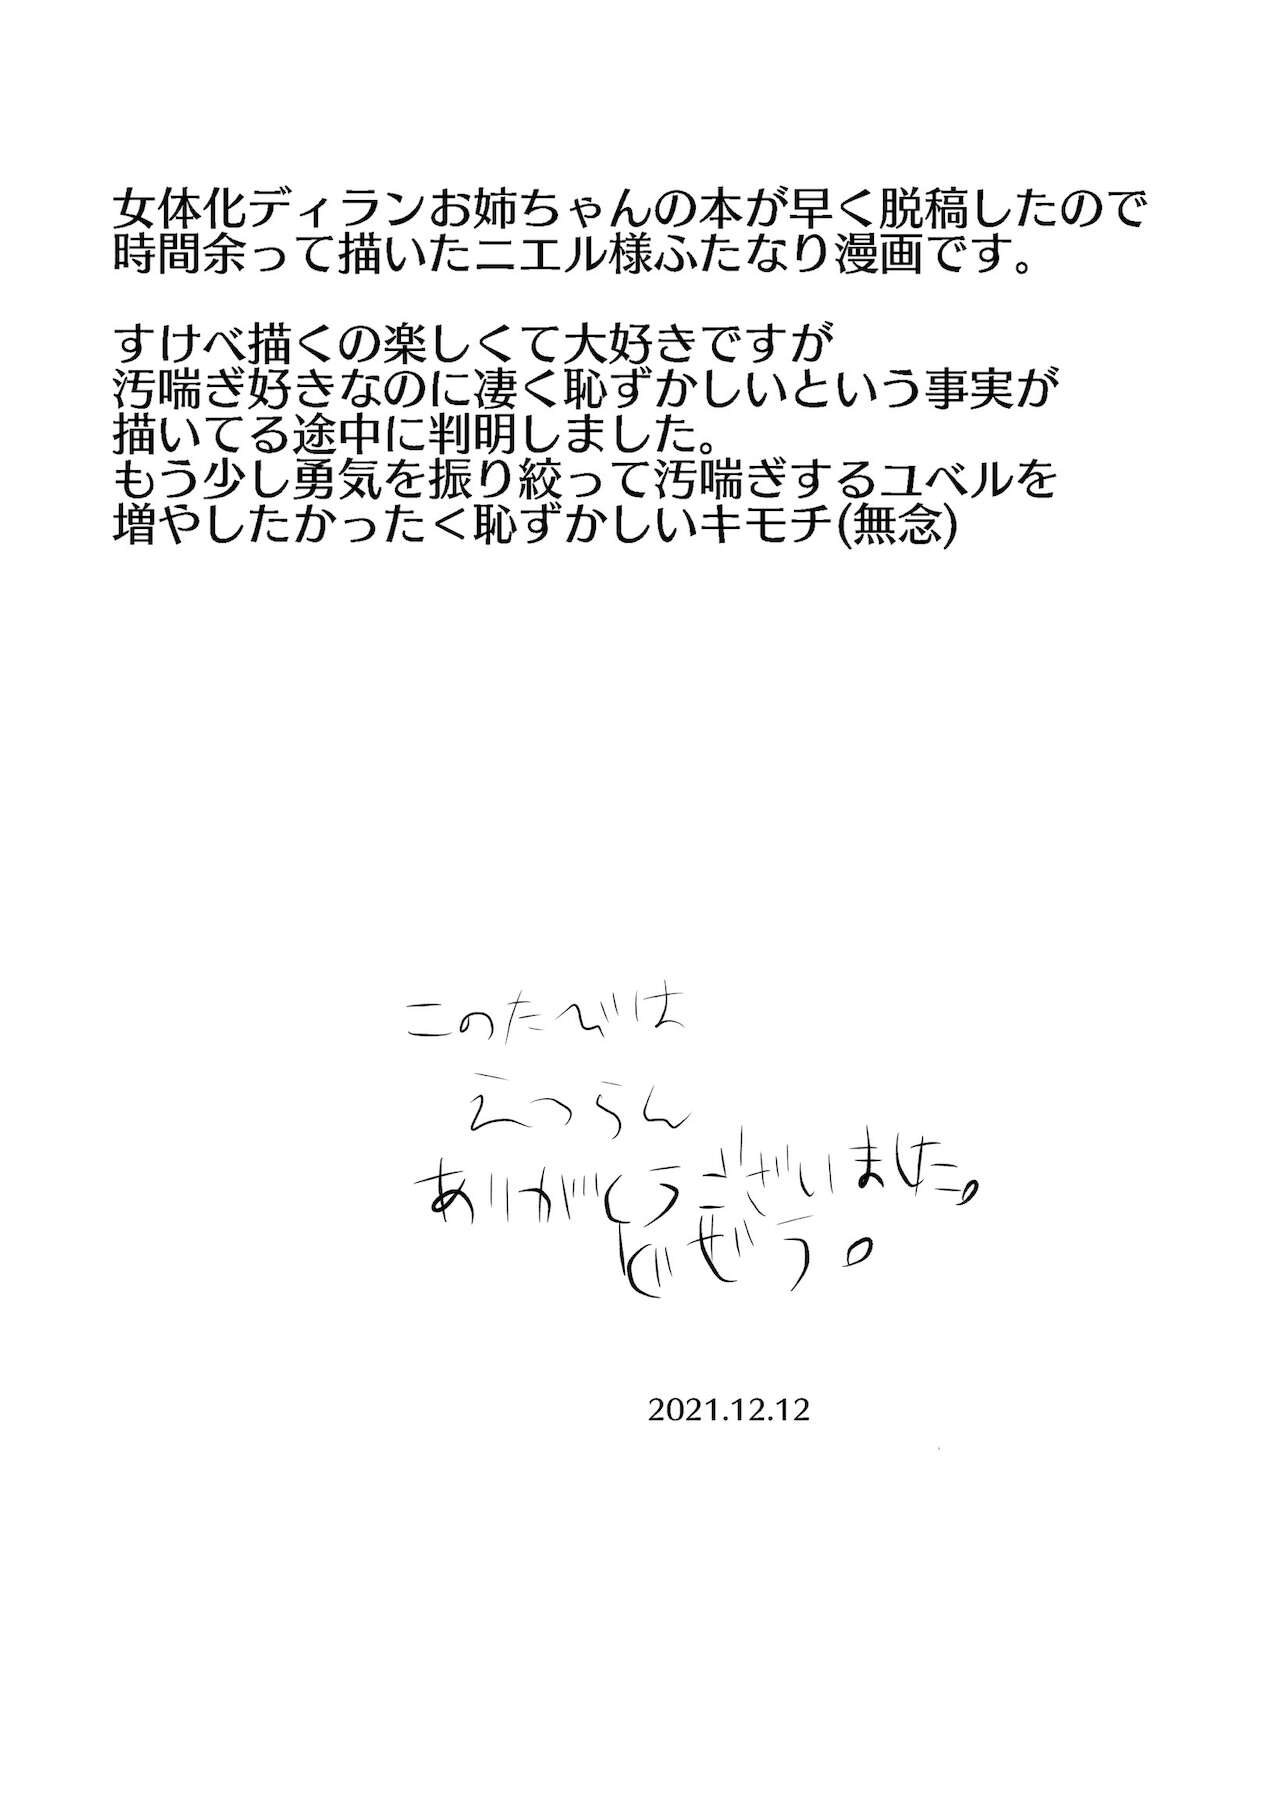 女体化ディランお姉ちゃんの本が早く脱稿したので
時間余って描いたニエル様ふたなり漫画です。
すけべ描くの楽しくて大好きですが
汚喘ぎ好きなのに凄く恥ずかしいという事実が
描いてる途中に判明しました。
もう少し勇気を振り絞って汚喘ぎするユベルを
増やしたかったく恥ずかしいキモチ(無念)
このたびは
えつらん
ありがとうございました。
どぜう。
2021.12.12